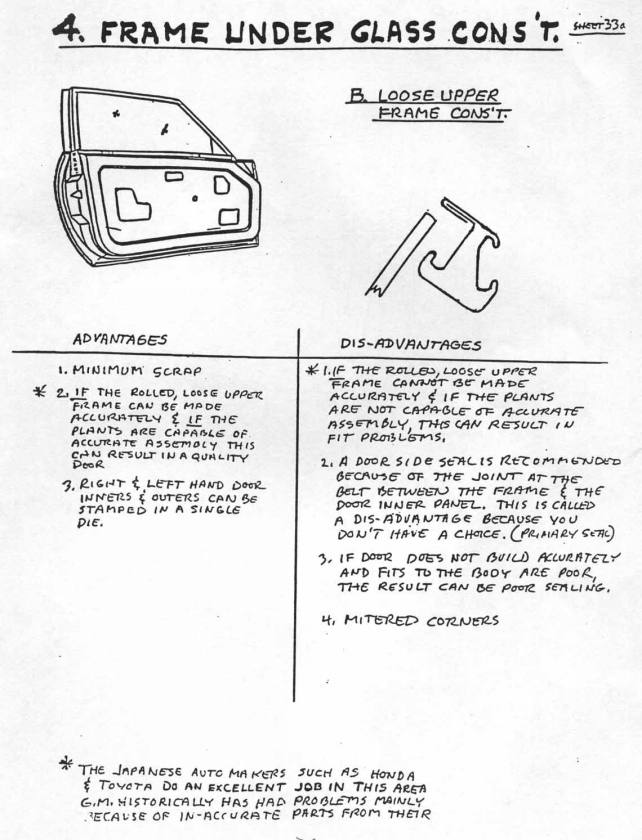 4. FRAME UNDER GLASS CONS'T. SHEET 33a
B. LOOSE UPPER
FRAME CONS'T.
ADVANTAGES
1. MINIMUM SCRAP
* 2. IF THE ROLLED, LOOSE UPPER
FRAME CAN BE MADE
ACCURATELY & IF THE
PLANTS ARE CAPABLE OF
ACCURATE ASSEMBLY THIS
CAN RESULT IN A QUALITY
DOOR
3. RIGHT & LEFT HAND DOOR
INNERS & OUTERS CAN BE
STAMPED IN A SINGLE
DIE.
DIS-ADVANTAGES
* 1. IF THE ROLLED, LOOSE UPPER
FRAME CANNOT BE MADE
ACCURATELY & IF THE PLANTS
ARE NOT CAPABLE OF ACCURATE
ASSEMBLY, THIS CAN RESULT IN
FIT PROBLEMS.
2. A DOOR SIDE SEAL IS RECOMMENDED
BECAUSE OF THE JOINT AT THE
BELT BETWEEN THE FRAME & THE
DOOR INNER PANEL. THIS IS CALLED
A DIS-ADVANTAGE BECAUSE YOU
DON'T HAVE A CHOICE. (PRIMARY SEAL)
3. IF DOOR DOES NOT BUILD ACCURATELY
AND FITS TO THE BODY ARE POOR,
THE RESULT CAN BE POOR SEALING.
4. MITERED CORNERS
* THE JAPANESE AUTO MAKERS SUCH AS HONDA
& TOYOTA DO AN EXCELLENT JOB IN THIS AREA
G.M. HISTORICALLY HAS HAD PROBLEMS MAINLY
BECAUSE OF IN-ACCURATE PARTS FROM THEIR